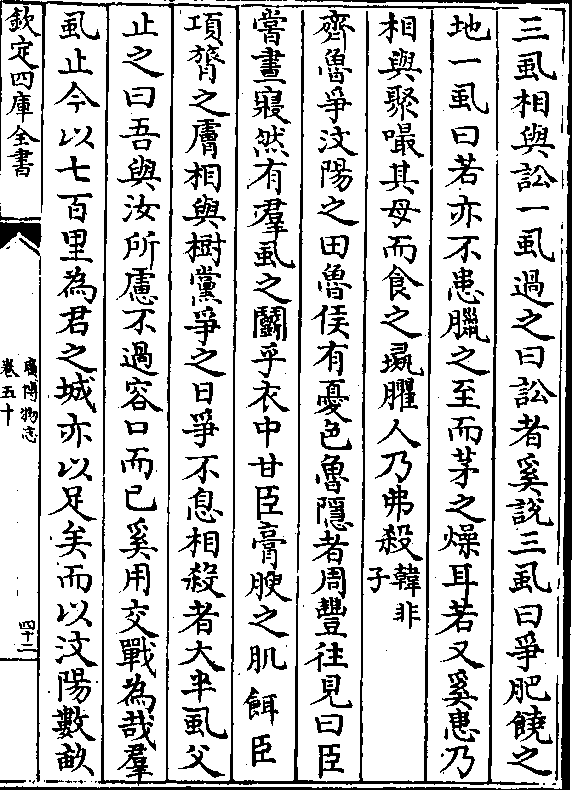 三虱相與訟一虱過之曰訟者奚說三虱曰爭肥饒之
地一虱曰若亦不患臘之至而茅之燥耳若又奚患乃
相與聚嘬其母而食之彘臞人乃弗殺韓非子
齊魯爭汶陽之田魯侯有憂色魯隱者周豐往見曰臣
嘗晝寢然有羣虱之鬭乎衣中甘臣膏腴之肌餌臣
項膂之膚相與樹黨爭之日爭不息相殺者大半虱父
止之曰吾與汝所慮不過容口而已奚用交戰為哉羣
虱止今以七百里為君之城亦以足矣而以汶陽數畝
欽定四庫全書
廣博物志
卷五十
四十二